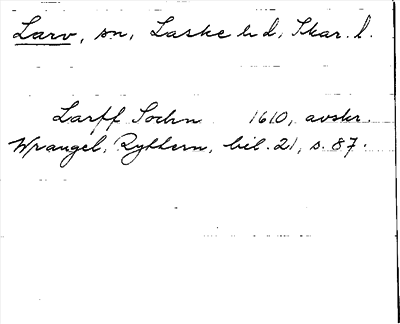 Larv, sn, Laske hd, Skar. l.
Larff Sochn 1610, avskr.
Wrangel, Rythern, bil. 21, s. 87.